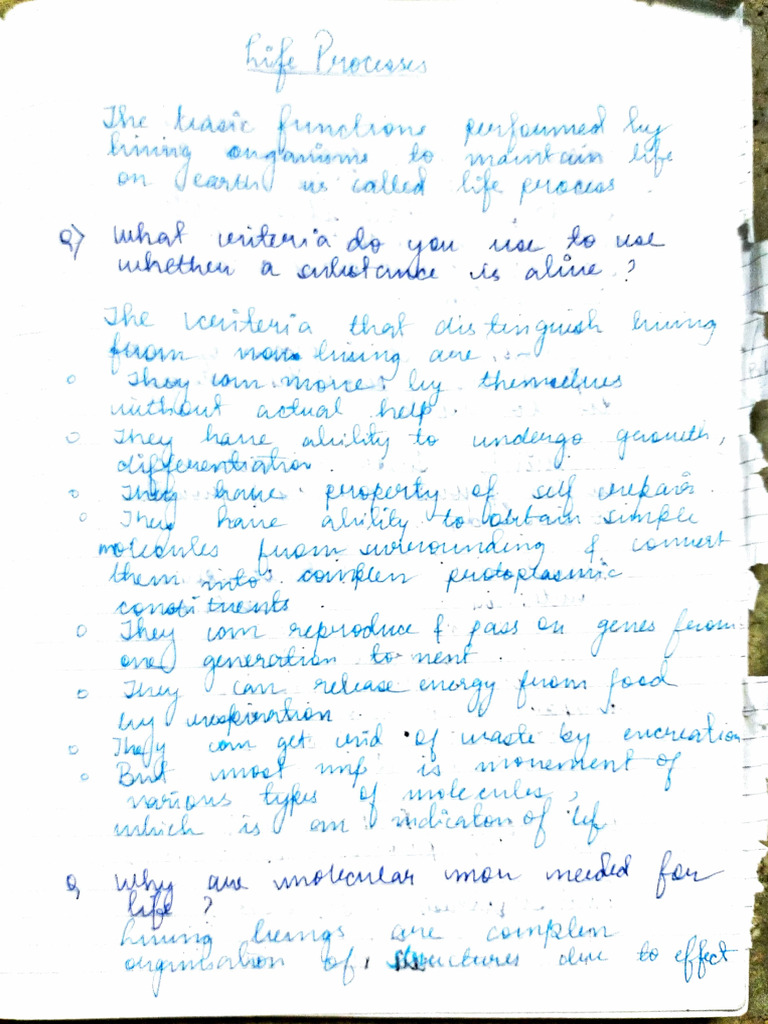 Life Processes
The basic functions performed by
living organisms to maintain life
on earth is called life process
Q) What criteria do you use to use
whether a substance is alive ?
The criteria that distinguish living
from non living are :-
They can move by themselves
without actual help.
They have ability to undergo growth,
differentiation.
They have property of self repair.
They have ability to obtain simple
molecules from surrounding & convert
them into complex protoplasmic
constituents
They can reproduce & pass on genes from
one generation to next.
They can release energy from food
by respiration
They can get rid of waste by excreation
But most imp is movement of
various types of molecules,
which is an indicator of lif.
Q, Why are molecular mov needed for
life ?
Living beings are complex
orgnisation of structures due to effect